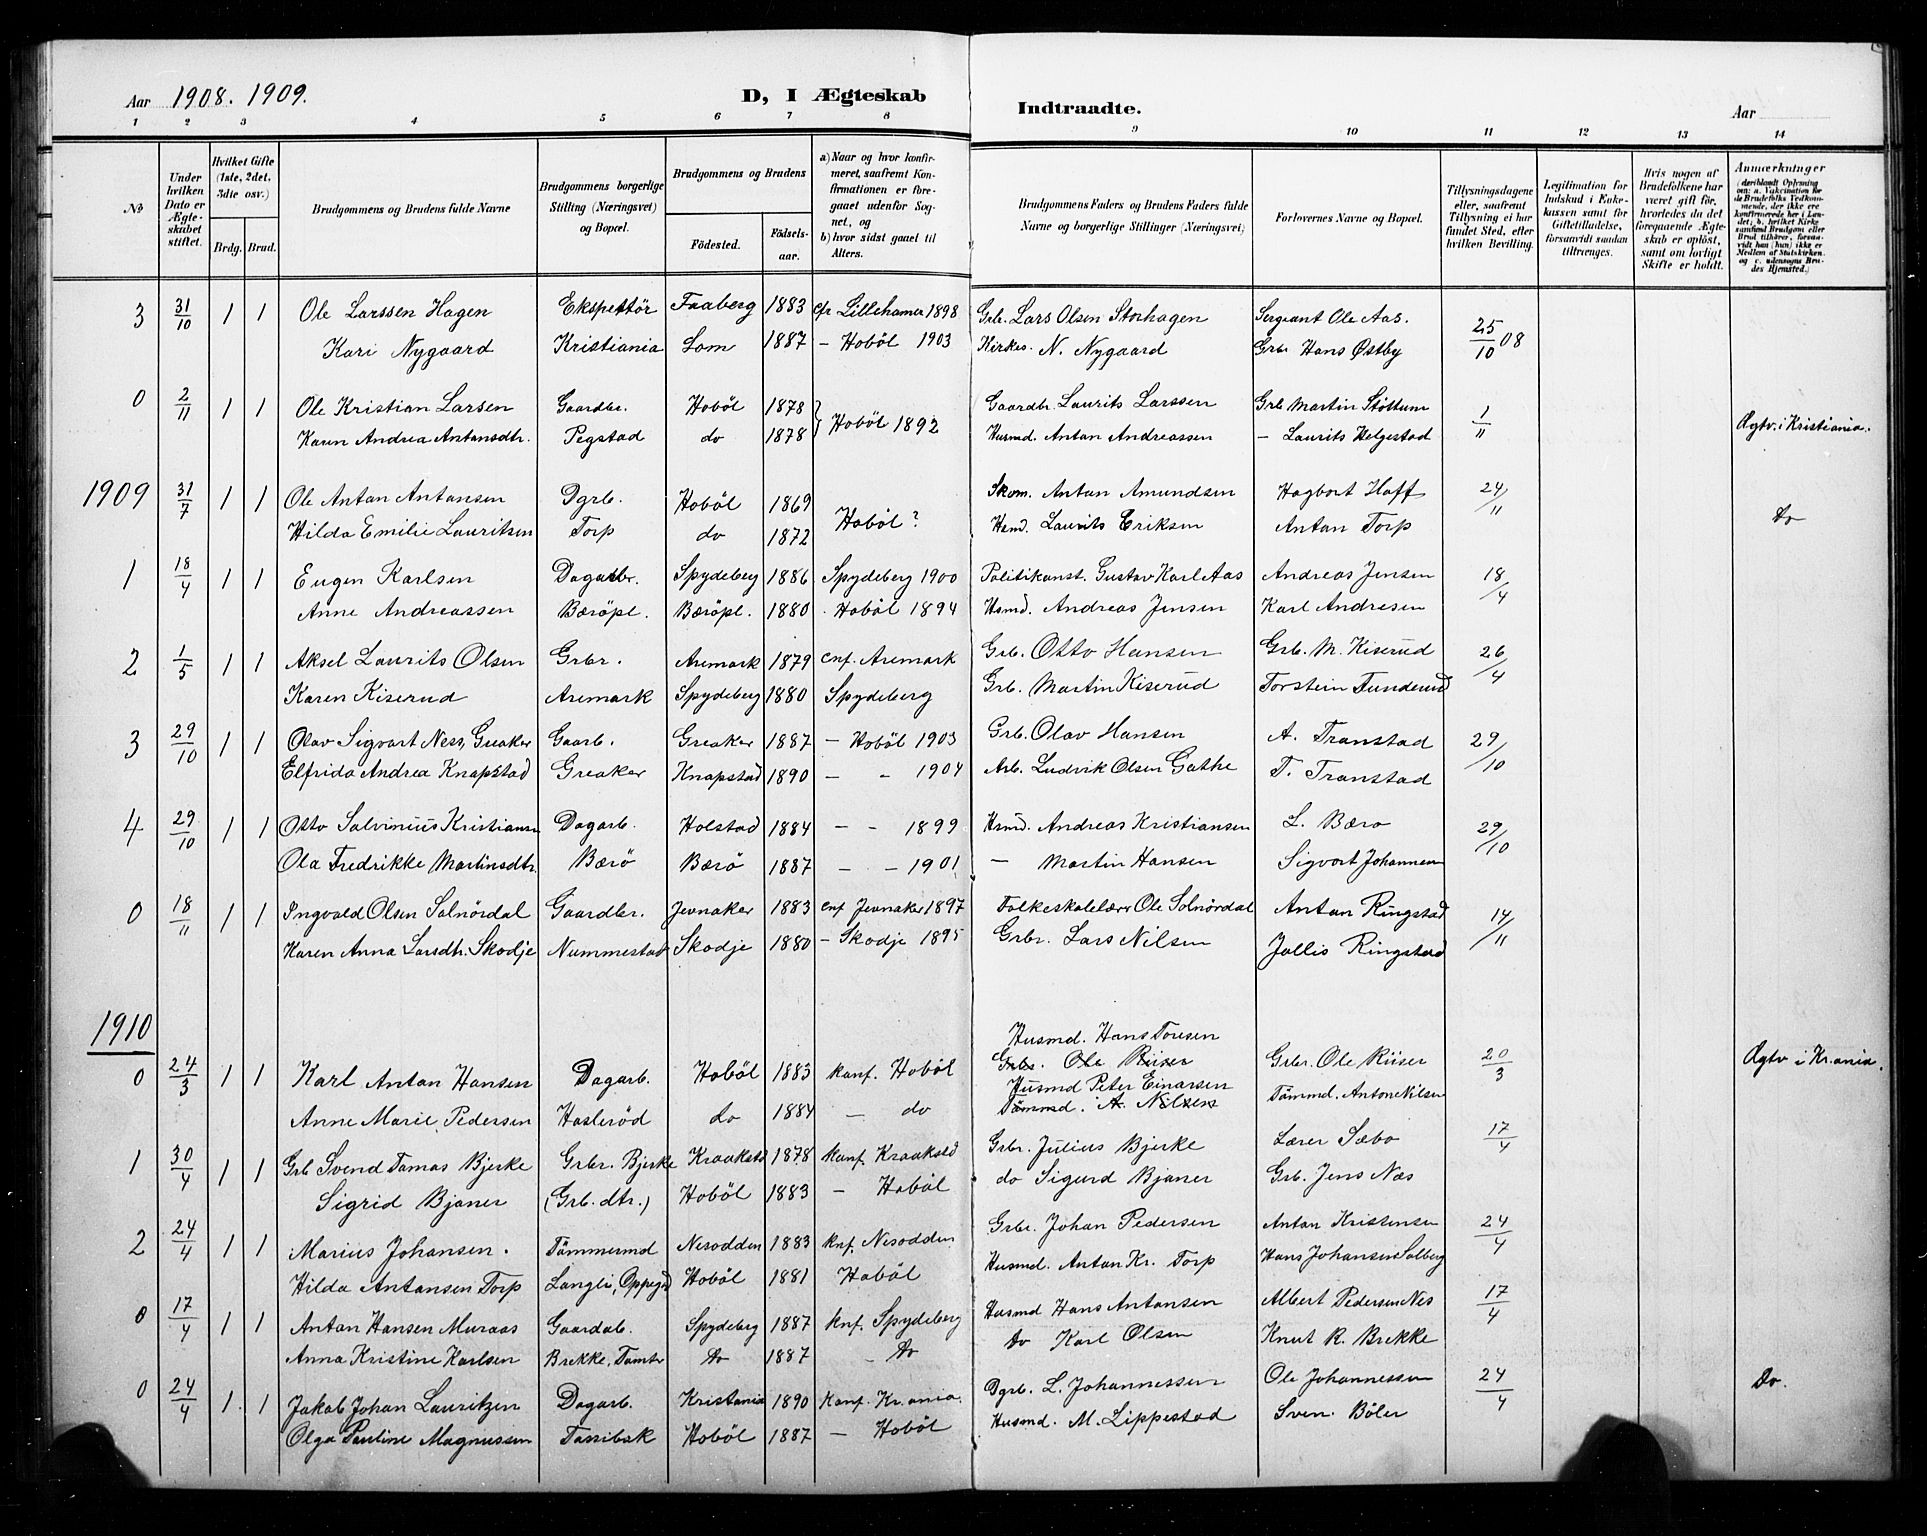 Aar 1908. 1909.
D, I Ægteskab
Indtraadte.
Aar
1 2 3 4 5 6 7 8 9 10 11 12 13 14
No
Under hvilken Dato er Ægteskabet stiftet.
Hvilket Gifte (1ste, 2det, 3die osv.)
Brdg. Brud.
Brudgommens og Brudens fulde Navne
Brudgommens borgerlige Stilling (Næringsvei) og Bopæl.
Brudgommens og Brudens
Fødested.
Fødselsaar.
a) Naar og hvor konfirmeret, saafremt Konfirmationen er foregaaet udenfor Sognet, og
b) hvor sidst gaaet til Alters.
Brudgommens Faders og Brudens Faders fulde Navne og borgerlige Stillinger (Næringsvei)
Forlovernes Navne og Bopæl.
Tillysningsdagene eller, saafremt Tillysning ei har fundet Sted, efter hvilken Bevilling.
Legitimation for Indskud i Enkekassen samt for Giftetilladelse, forsaavidt saadan tiltrænges.
Hvis nogen af Brudefolkene har været gift før, hvorledes da det foregaaende Ægteskab er opløst, samt om lovligt Skifte er holdt.
Anmærkninger
(deriblandt Oplysning om: a. Vaccination for de Brudefolks Vedkommende, der ikke ere konfirmerede her i Landet; b. hvilket Kirkesamfund Brudgom eller Brud tilhører, forsaavidt han (hun) ikke er Medlem af Statskirken og c. udensogns Brudes Hjemsted.
3 31/10 1 1 Ole Larssen Hagen Ekspeditör Faaberg 1883 cfr Lillehamer 1898 Grb. Lars Olsen Storhagen Sergeant Ole Aas. 25/10 08
Kari Nygaard Kristiania Lom 1887 – Hoböl 1903 Kirkes. N. Nygaard Grbr Hans Østby
0 2/11 1 1 Ole Kristian Larsen Gaardbr. Hoböl 1878 } Hoböl 1892 Gaardbr. Laurits Larssen Grb Martin Stöttum 1/11
Karen Andrea Antansdtr. Pegstad do 1878 Husmd. Antan Andreassen – Laurits Helgestad Ægtv. i Kristiania.
1909 31/7 1 1 Ole Antan Antansen Dgrb. Hoböl 1869 Hoböl? Skom. Antan Amundsen Hagbart Hoff 24/11
Hilda Emilie Lauritsen Torp do 1872 Hsmd. Laurits Eriksen Antan Torp do
1 18/4 1 1 Eugen Karlsen Dagarbr. Spydeberg 1886 Spydeberg 1900 Politikonst. Gustav Karl Aas Andreas Jensen 18/4
Anne Andreassen Bæröpl. Bæröpl. 1880 Hoböl 1894 Hsmd. Andreas Jensen Karl Andresen
2 1/5 1 1 Aksel Laurits Olsen Grbr. Aremark 1879 cnf. Aremark Grb. Otto Hansen Grb. M. Kiserud 26/4
Karen Kiserud Aremark Spydeberg 1880 Spydeberg Grb. Martin Kiserud Torstein Tunderud
3 29/10 1 1 Olav Sigvart Ness, Greaker Gaarb. Greaker 1887 – Hoböl 1903 Grb. Olav Hansen A. Transtad 29/10
Elfrida Andrea Knapstad Greaker Knapstad 1890 – – 1904 Arb. Ludvik Olsen Gathe T. Transtad
4 29/10 1 1 Otto Salvinius Kristiansn Dagarb. Holstad 1884 – – 1899 Hsmd. Andreas Kristiansen L. Bærø 29/10
Ola Fredrikke Martinsdtr. Bærö Bærö 1887 – – 1901 – Martin Hansen Sigvart Johannen
0 18/11 1 1 Ingvald Olsen Solnördal Gaardbr. Jevnaker 1883 cnf Jevnaker 1897 Folkeskolelærer Ole Solnördal Antan Ringstad 14/11
Karen Anna Larsdtr. Skodje Nummestad Skodje 1880 – Skodje 1895 Grbr. Lars Nilsen Jallis Ringstad
1910
Husmd. Hans Toresen
0 24/3 1 1 Karl Antan Hansen Dagarb. Hoböl 1883 Konf. Hoböl Grbr. Ole Riiser Grbr. Ole Riiser 20/3 Ægtv i Kr.ania.
Husmd Peter Einarsen
Anne Marie Pedersen Haslerød do 1884 – do Tömmd. A. Nilsen Tömmd. Antone Nilsen
1 30/4 1 1 Grb Svend Tomas Bjerke Grbr. Bjerke Kraakstd 1878 Konf. Kraaksed Grbr. Julius Bjerke Lærer Sæbo 17/4
Sigrid Bjaner (Grb. dtr.) Hoböl 1883 – Hoböl do Sigurd Bjaner Grb. Jens Næs
2 24/4 1 1 Marius Johansen. Tömmermd Nesodden 1883 knf. Nesodden Grbr. Johan Pedersen Antan Kristensen 24/4
Hilda Antansen Torp Langli, Oppegd Hoböl 1881 Hoböl Husmd. Antan Kr. Torp Hans Johansen Solberg
0 17/4 1 1 Antan Hansen Muraas Gaardab. Spydeberg 1887 knf. Spydeberg Husmd Hans Antansen Albert Pedersen Nes 17/4
Anna Kristine Karlsen Brekke, Tomter do 1887 – do do Karl Olsen Knut R. Brekke
0 24/4 1. 1 Jakob Johan Lauritzen Dagarb. Kristania 1890 Konf. Kr.ania. Dgrb. L. Johannessen Ole Johannessen 24/4 Do.
Olga Pauline Magnussen Tassibak Hoböl 1887 – Hoböl Husmd. M. Lippestad Sven Böler